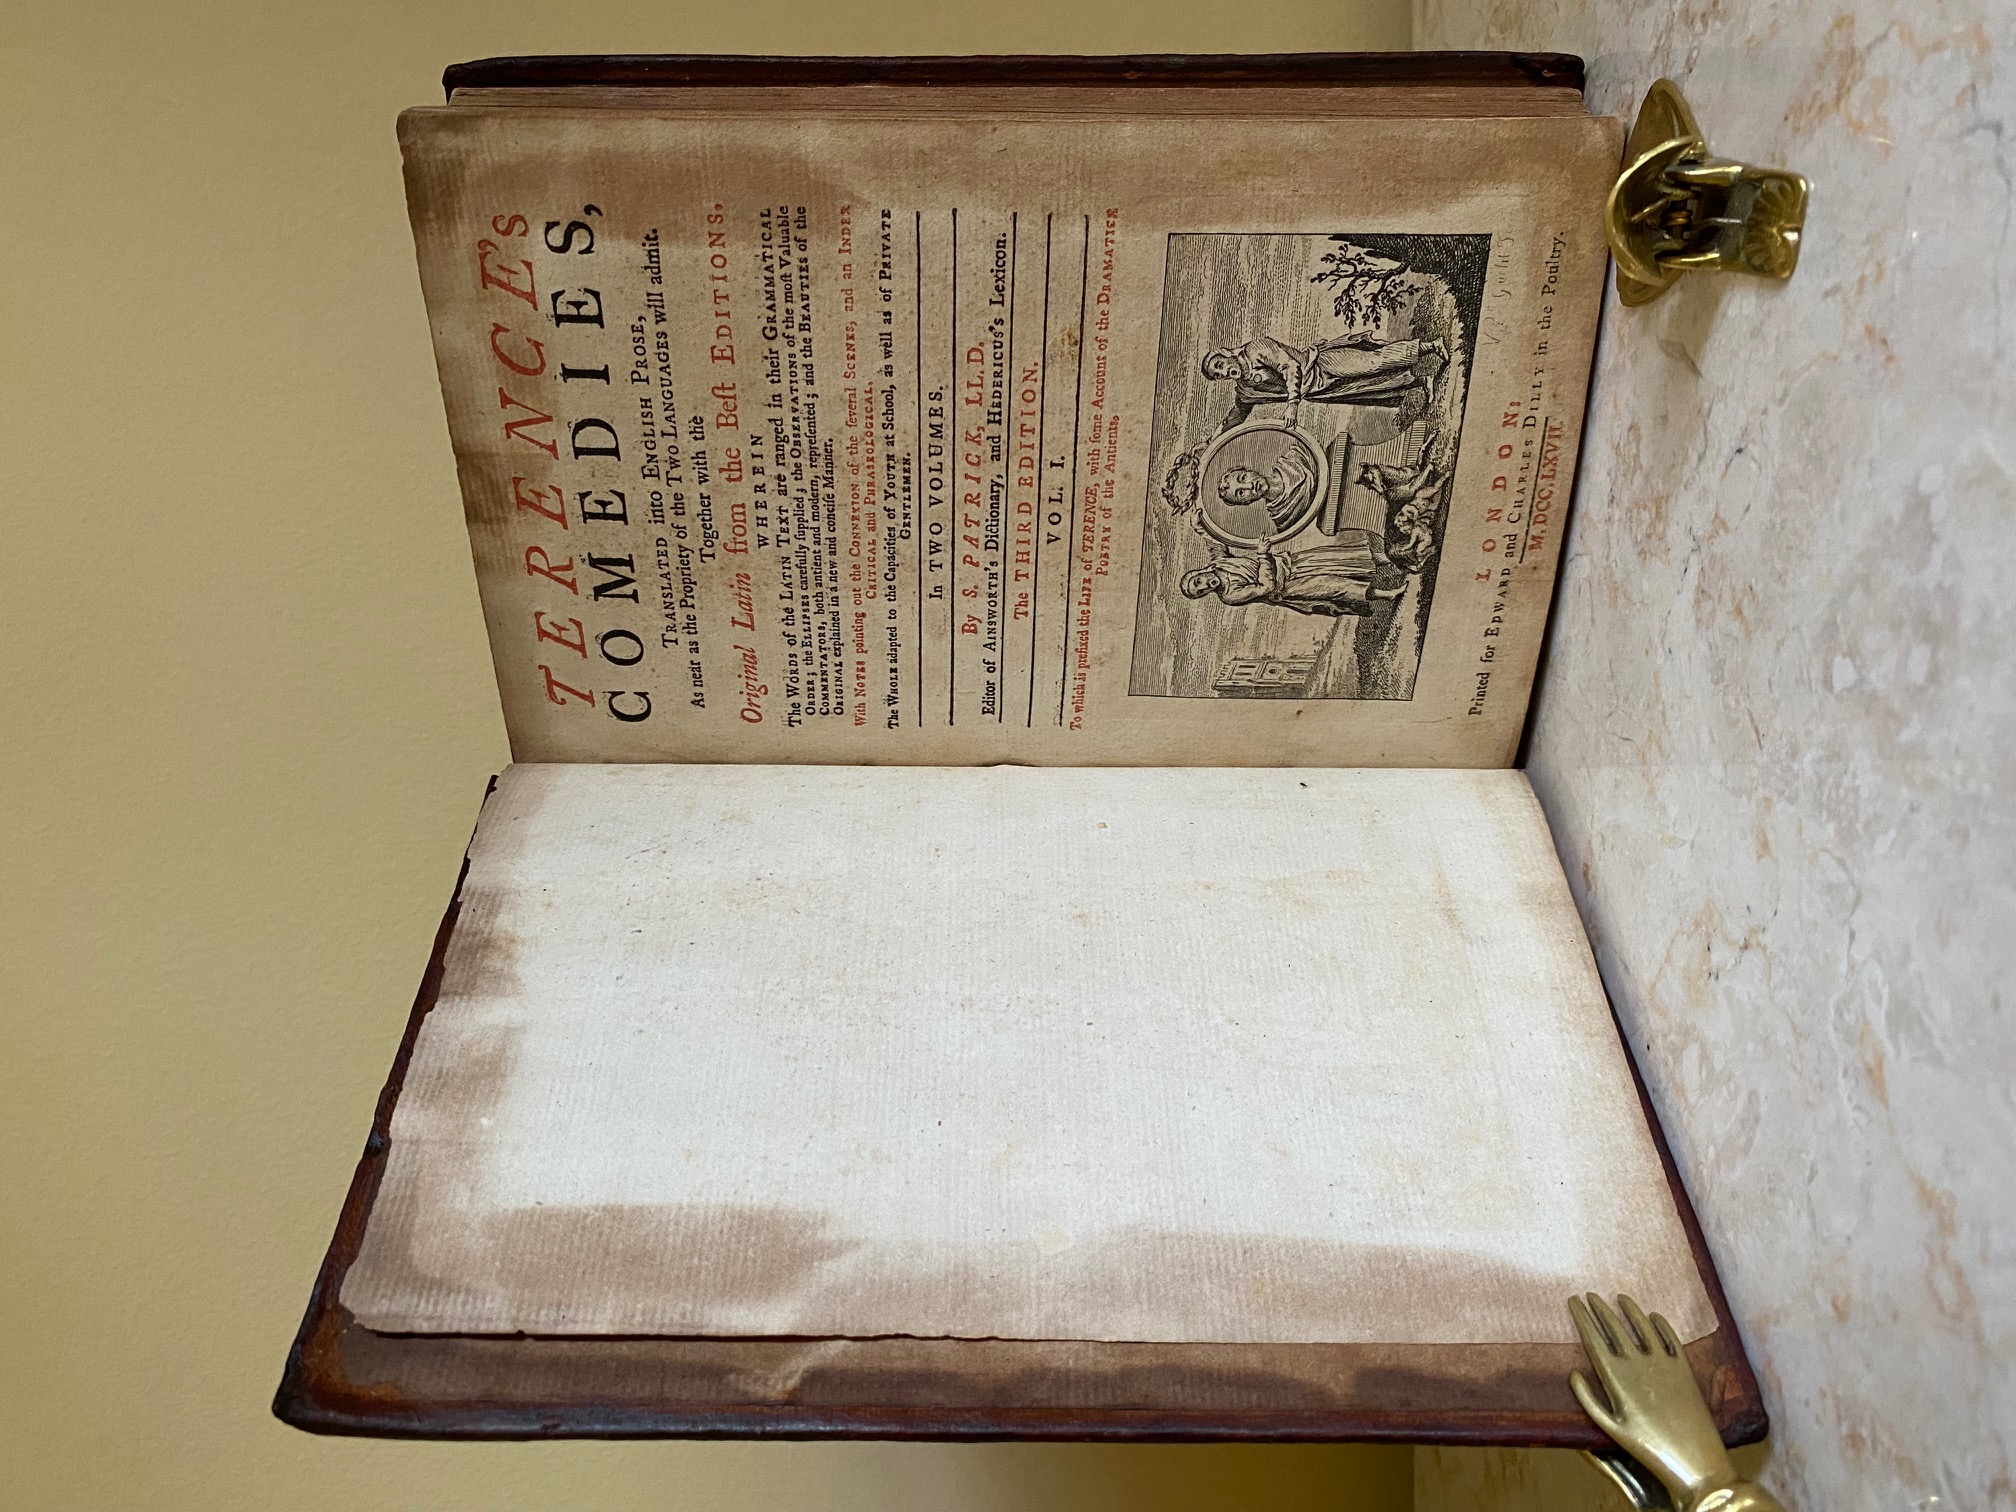 TERENCE's
COMEDIES,
TRANSLATED into ENGLISH PROSE,
As near as the Propriety of the TWO LANGUAGES will admit.
Together with the
Original Latin from the Beſt EDITIONS.
WHEREIN
The WORDS of the LATIN TEXT are ranged in their GRAMMATICAL
ORDER; the ELLIPSES carefully ſupplied; the OBSERVATIONS of the moſt Valuable
COMMENTATORS, both antient and modern, repreſented; and the BEAUTIES of the
ORIGINAL explained in a new and conciſe Manner.
With NOTES pointing out the CONNEXION of the ſeveral SCENES, and an INDEX
CRITICAL and PHRASEOLOGICAL.
The WHOLE adapted to the Capacities of YOUTH at School, as well as of PRIVATE
GENTLEMEN.
In TWO VOLUMES.
By S. PATRICK, LL.D.
Editor of AINSWORTH's Dictionary, and HEDERICUS's Lexicon.
The THIRD EDITION.
VOL. I.
To which is prefixed the LIFE of TERENCE, with ſome Account of the DRAMATICK
POETRY of the Antients.
LONDON:
Printed for EDWARD and CHARLES DILLY in the Poultry.
M,DCC,LXVII.